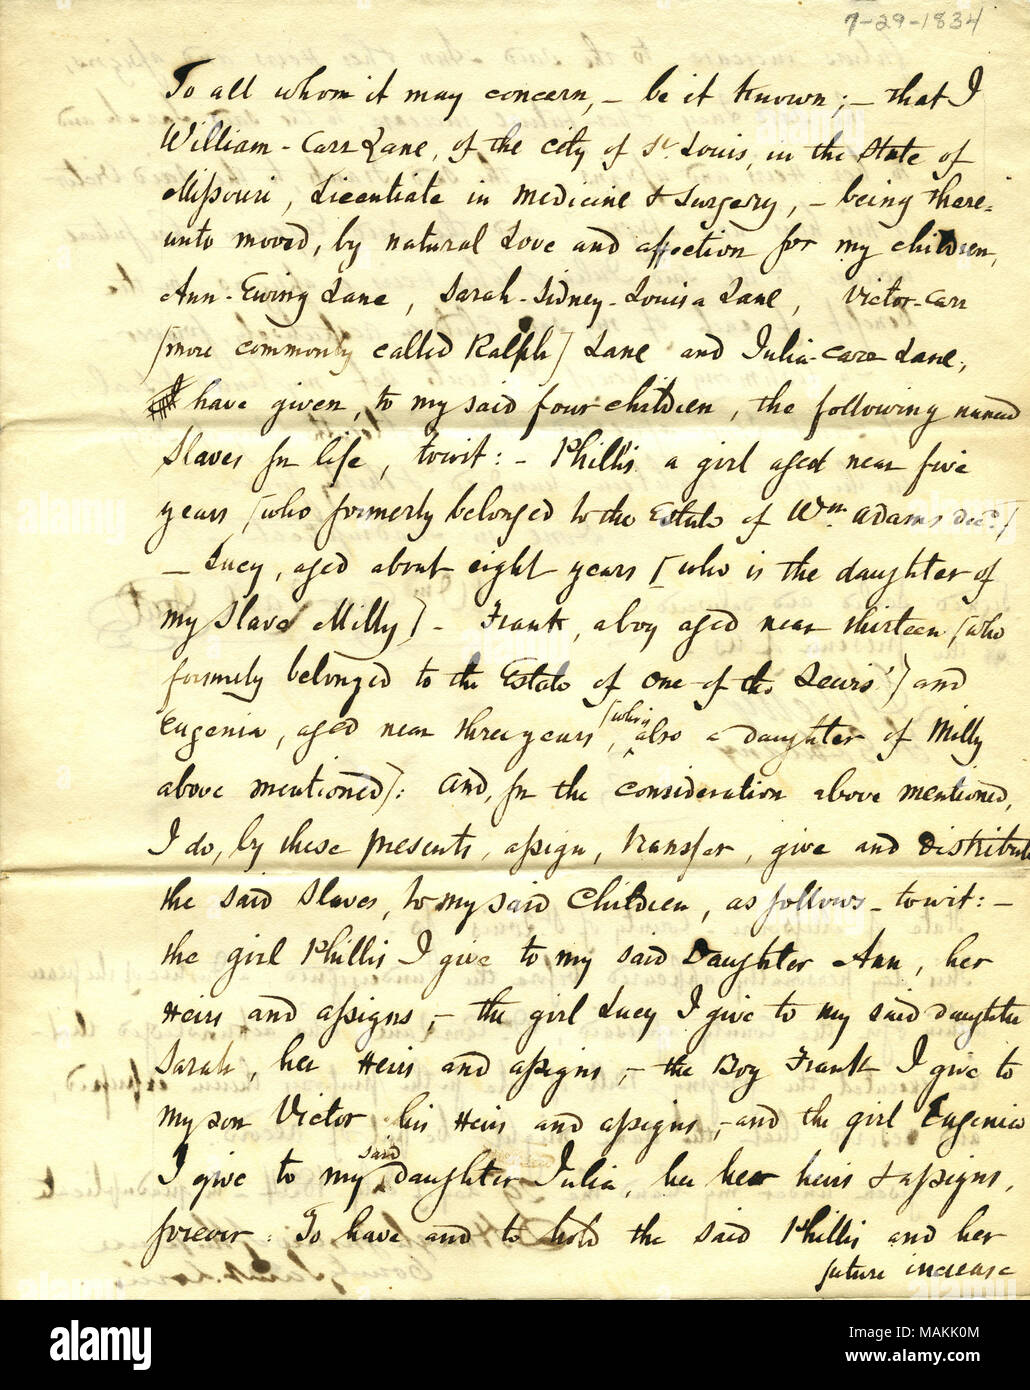 7-29-1834
To all whom it may concern, - be it known; - that I
William - Carr Lane, of the city of St. Louis, in the State of
Missouri, Licentiate in Medicine & Surgery, - being there=
unto moved, by natural Love and affection for my children,
Ann - Ewing Lane, Sarah - Sidney - Louisa Lane, Victor - Carr
[more commonly called Ralph] Lane and Julia - Carr Lane,
have given, to my said four children, the following named
Slaves for life, towit: - Phillis a girl aged near five
years [who formerly belonged to the Estate of Wm. Adams decd.]
- Lucy, aged about eight years [who is the daughter of
my Slave Milly] - Frank, a boy aged near thirteen [who
formerly belonged to the Estate of one of the Lewis'] and
Eugenia, aged near three years, [who is also a daughter of Milly
above mentioned]: and, for the consideration above mentioned,
I do, by these presents, assign, transfer, give and distribute
the said Slaves, to my said Children, as follows - towit: -
the girl Phillis I give to my said Daughter Ann, her
Heirs and assigns, - the girl Lucy I give to my said daughter
Sarah, her Heirs and assigns, - the Boy Frank I give to
my son Victor his Heirs and assigns, - and the girl Eugenia
I give to my said daughter Julia, her her heirs & assigns,
forever: To have and to hold the said Phillis and her
future increase
alamy
Image ID: MAKK0M
www.alamy.com